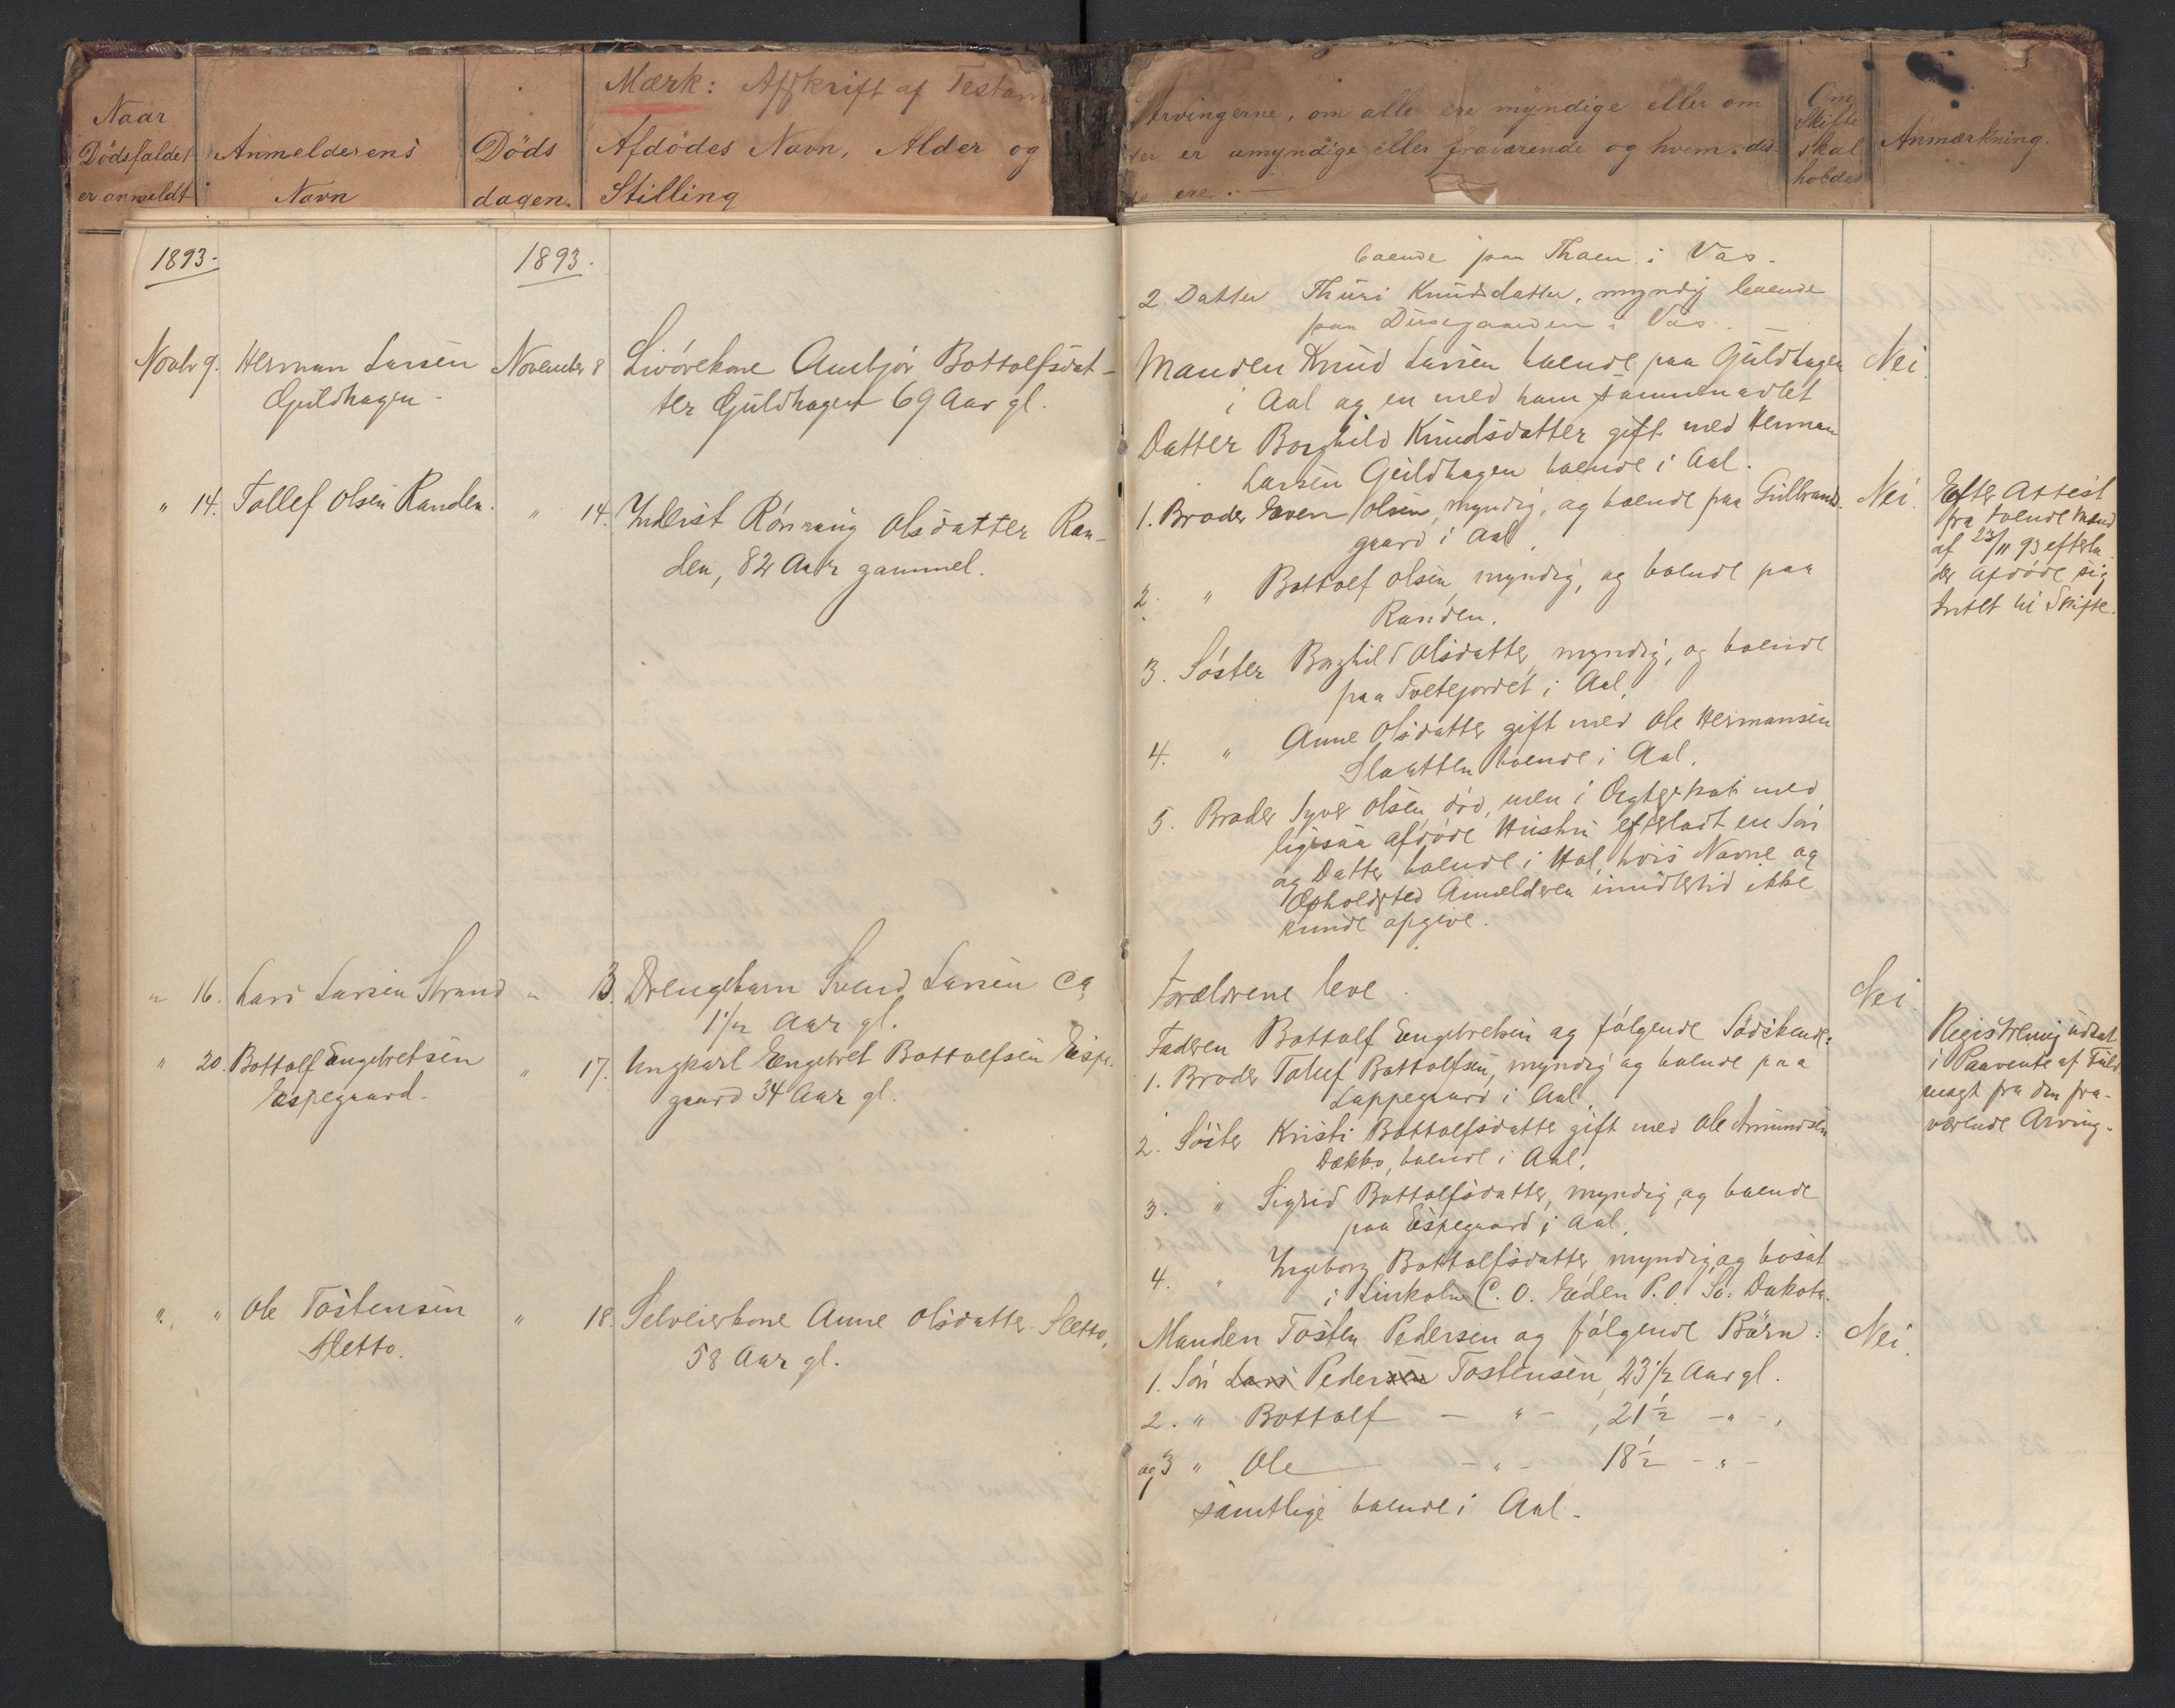 Mærk: Afskrift af Testam
Naar
Dödsfaldet
er anmeldt
Anmelderens
Navn
Döds
dagen.
Afdödes Navn, Alder og
Stilling
Arvingerne, om alle ere myndige eller om
er umyndige eller fraværende og hvem disse
ere.
Om
Skifte
skal
holdes
Anmærkning.
1893.
1893.
boende paa Thoen i Vos.
2. Datter Thuri Knudsdatter, myndig boende
paa Dusegaarden i Vos. —
Novbr 9. Herman Larsen
Guldhagen
November 8
Livörekone Ambjör Bottolfsdat-
ter Guldhagen 69 Aar gl.
Manden Knud Larsen boende paa Guldhagen
i Aal og en med ham sammenavlet
Datter Borghild Knudsdatter gift med Herman
Larsen Guldhagen boende i Aal.
Nei.
" 14. Tollef Olsen Randen.
" 14.
Inderst Rönnaug Olsdatter Ran-
den, 82 Aar gammel.
1. Broder Even Olsen, myndig, og boende paa Gulbrands-
gaard i Aal.
2. " Bottolf Olsen, myndig, og boende paa
Randen.
3. Söster Borghild Olsdatter, myndig, og boende
paa Tvetejordet i Aal.
4. " Anne Olsdatter gift med Ole Hermansen
Slaatten boende i Aal.
5. Broder Syver Olsen, död, men i Ægteskab med
ligesaa afdöde Hustru efterladt en Sön
og Datter boende i Hol, hvis Navne og
Opholdsted Anmelderen imidlertid ikke
kunde opgive.
Nei.
Efter Attest
fra tvende Mænd
af 23/11 93 efterla-
der Afdöde sig
Intet til Skifte.
" 16. Lars Larsen Strand
" 13.
Drengebarn Svend Larsen ca
1 1/2 Aar gl.
Forældrene leve.
Nei.
" 20. Bottolf Engebretsen
Espegaard.
" 17.
Ungkarl Engebret Bottolfsen Espe-
gaard 34 Aar gl.
Faderen Bottolf Engebretsen og fölgende Södskende:
1. Broder Tollef Bottolfsen, myndig og boende paa
Lappegaard i Aal.
2. Söster Kristi Bottolfsdatter gift med Ole Amundsen
Dekko, boende i Aal.
3. " Sigrid Bottolfsdatter, myndig og boende
paa Espegaard i Aal.
4. " Ingeborg Bottolfsdatter, myndig og bosat
i Linkoln C. O. Eden P.O. So: Dakota.
Registrering udsat
i Paavente af Fuld-
magt fra den fra-
værende Arving.
" " Ole Tostensen
Sletto.
" 18.
Selveierkone Anne Olsdatter Sletto,
58 Aar gl.
Manden Tosten Pedersen og fölgende Börn:
1. Sön Lars Pedersen Tostensen, 23 1/2 Aar gl.
2. " Bottolf — " —, 21 1/2 — " —,
og 3 " Ole — " — 18 1/2 — " —
samtlige boende i Aal.
Nei.